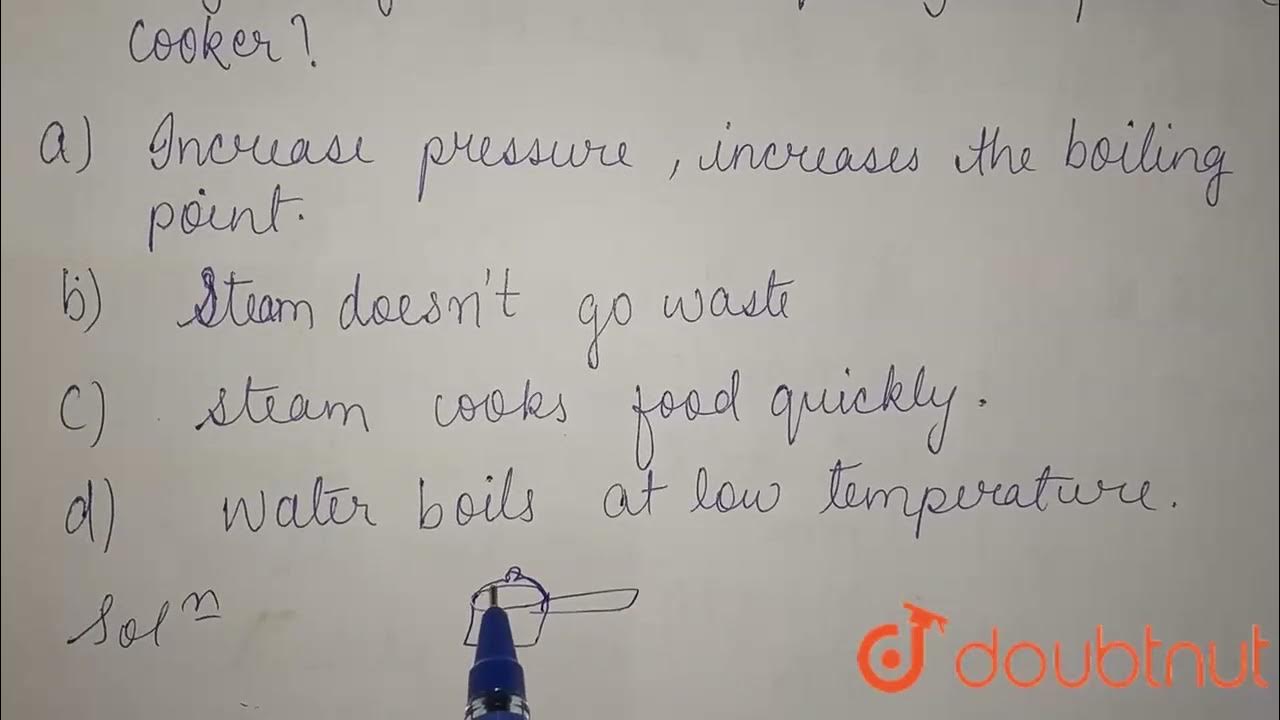 cooker?
a) Increase pressure, increases the boiling
point.
b) Steam doesn't go waste
c) steam cooks food quickly.
d) water boils at low temperature.
Solⁿ
doubtnut